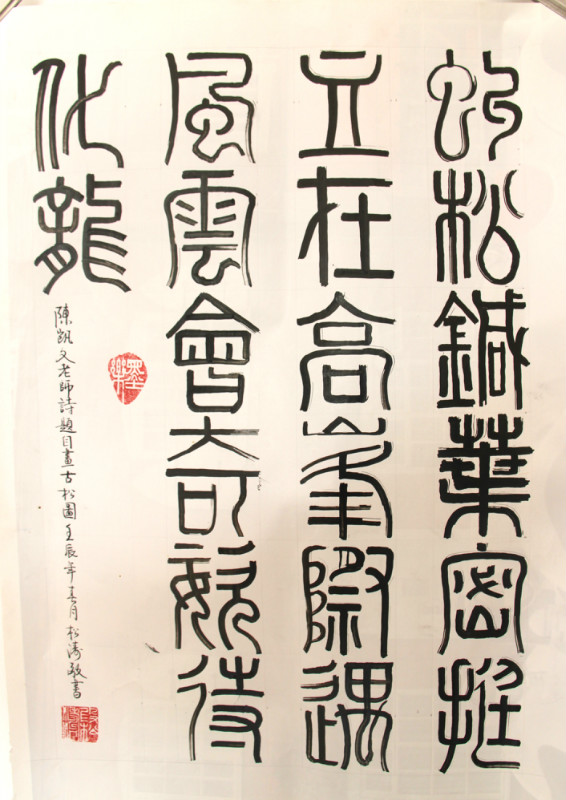 虬松鍼葉密挺
立在高峯際遇
風雲會奇姿待
化龍
陳凱文老師詩題目畫古松圖壬辰年春月松濤敬書
墨樂